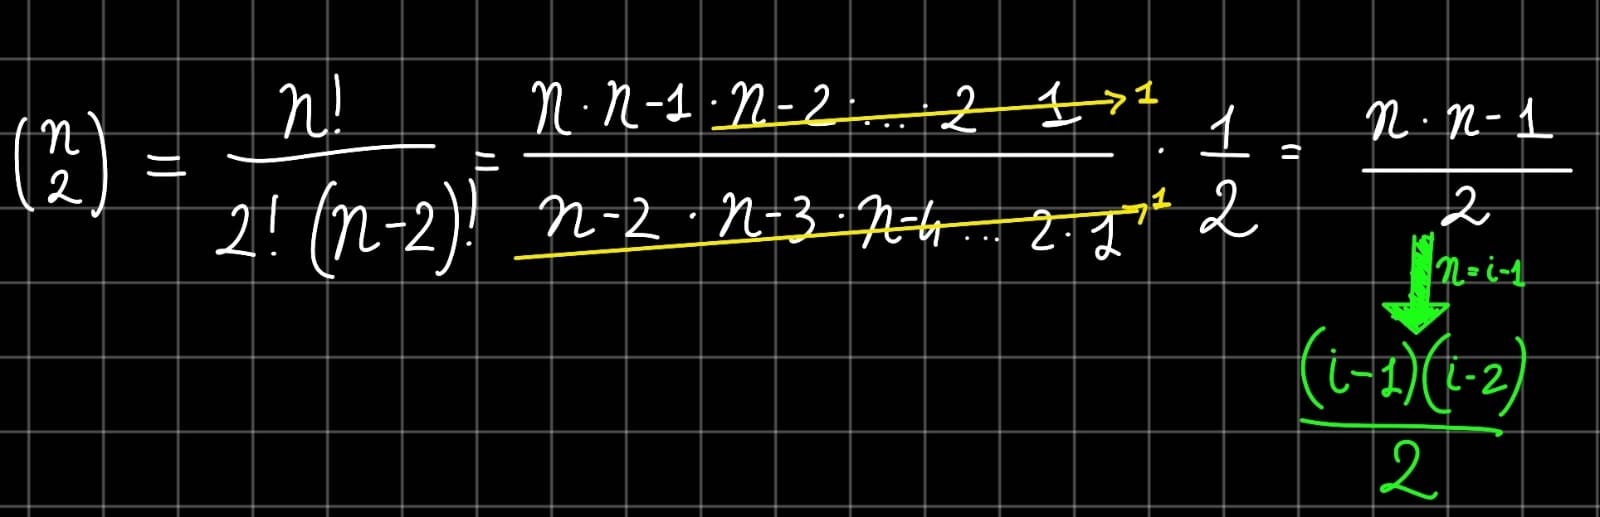 (n 2) = n! / 2! (n-2)! = n · n-1 · n-2 · ... · 2 1 →1 / n-2 · n-3 · n-4 ... 2 · 1 →1 · 1/2 = n · n-1 / 2
n=i-1
(i-1)(i-2) / 2